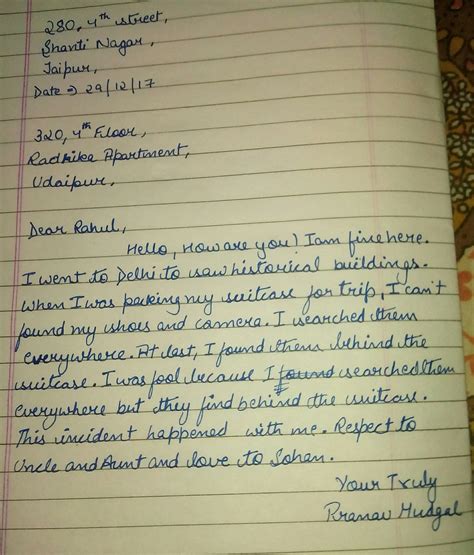 280, 4th street,
Shanti Nagar,
Jaipur,
Date → 29/12/17
320, 4th Floor,
Radhika Apartment,
Udaipur,
Dear Rahul,
Hello, How are you? I am fine here.
I went to Delhi to saw historical buildings.
When I was packing my suitcase for trip, I can't
found my shoes and camera. I searched them
everywhere. At last, I found them behind the
suitcase. I was fool because I found searched them
everywhere but they find behind the suitcase.
This incident happened with me. Respect to
Uncle and Aunt and love to Sohan.
Your Truly
Pranav Mudgal